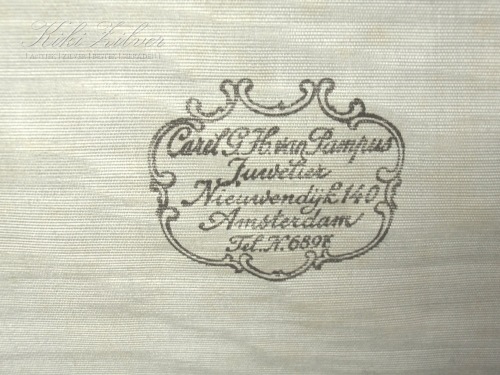 Kiki Zilver
Carel G.H. van Pampus
Juwelier
Nieuwendijk 140
Amsterdam
Tel. N. 6897